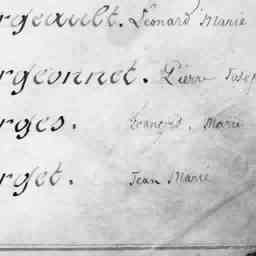 rgeault. Léonard Marie
rgeonnet. Pierre Josep
rges. François, Marie
rget. Jean Marie